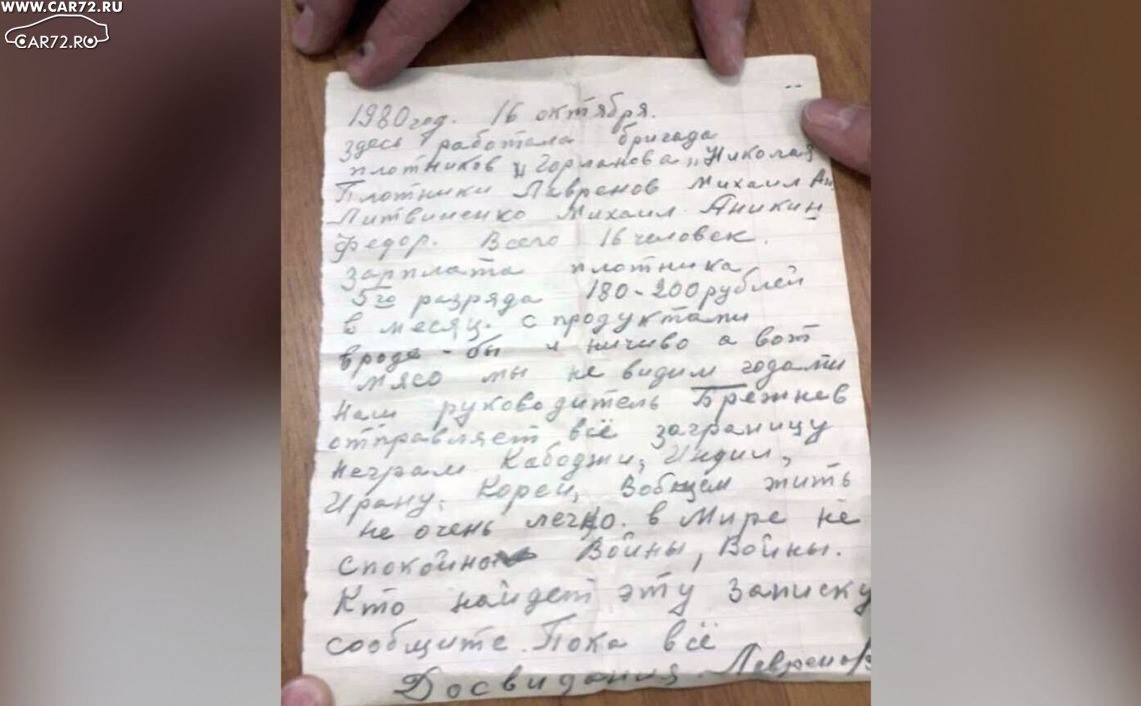 WWW.CAR72.RU
CAR72.RU
1980 год. 16 октября.
здесь работала бригада
плотников „Горланова„ Николая
Плотники Лавренов Михаил Ан
Литвиненко Михаил. Аникин
Федор. Всего 16 человек.
Зарплата плотника
5го разряда 180-200 рублей
в месяц. с продуктами
вроде-бы и ничиво а вот
мясо мы не видим годами
Наш руководитель Брежнев
отправляет всё заграницу
Неграм Кабоджи, Индии,
Ирану. Кореи, Вобщем жить
не очень легко. в Мире не
спокойно Войны, Войны.
Кто найдет эту Записку
сообщите. Пока всё
Досвидания. Лавренов